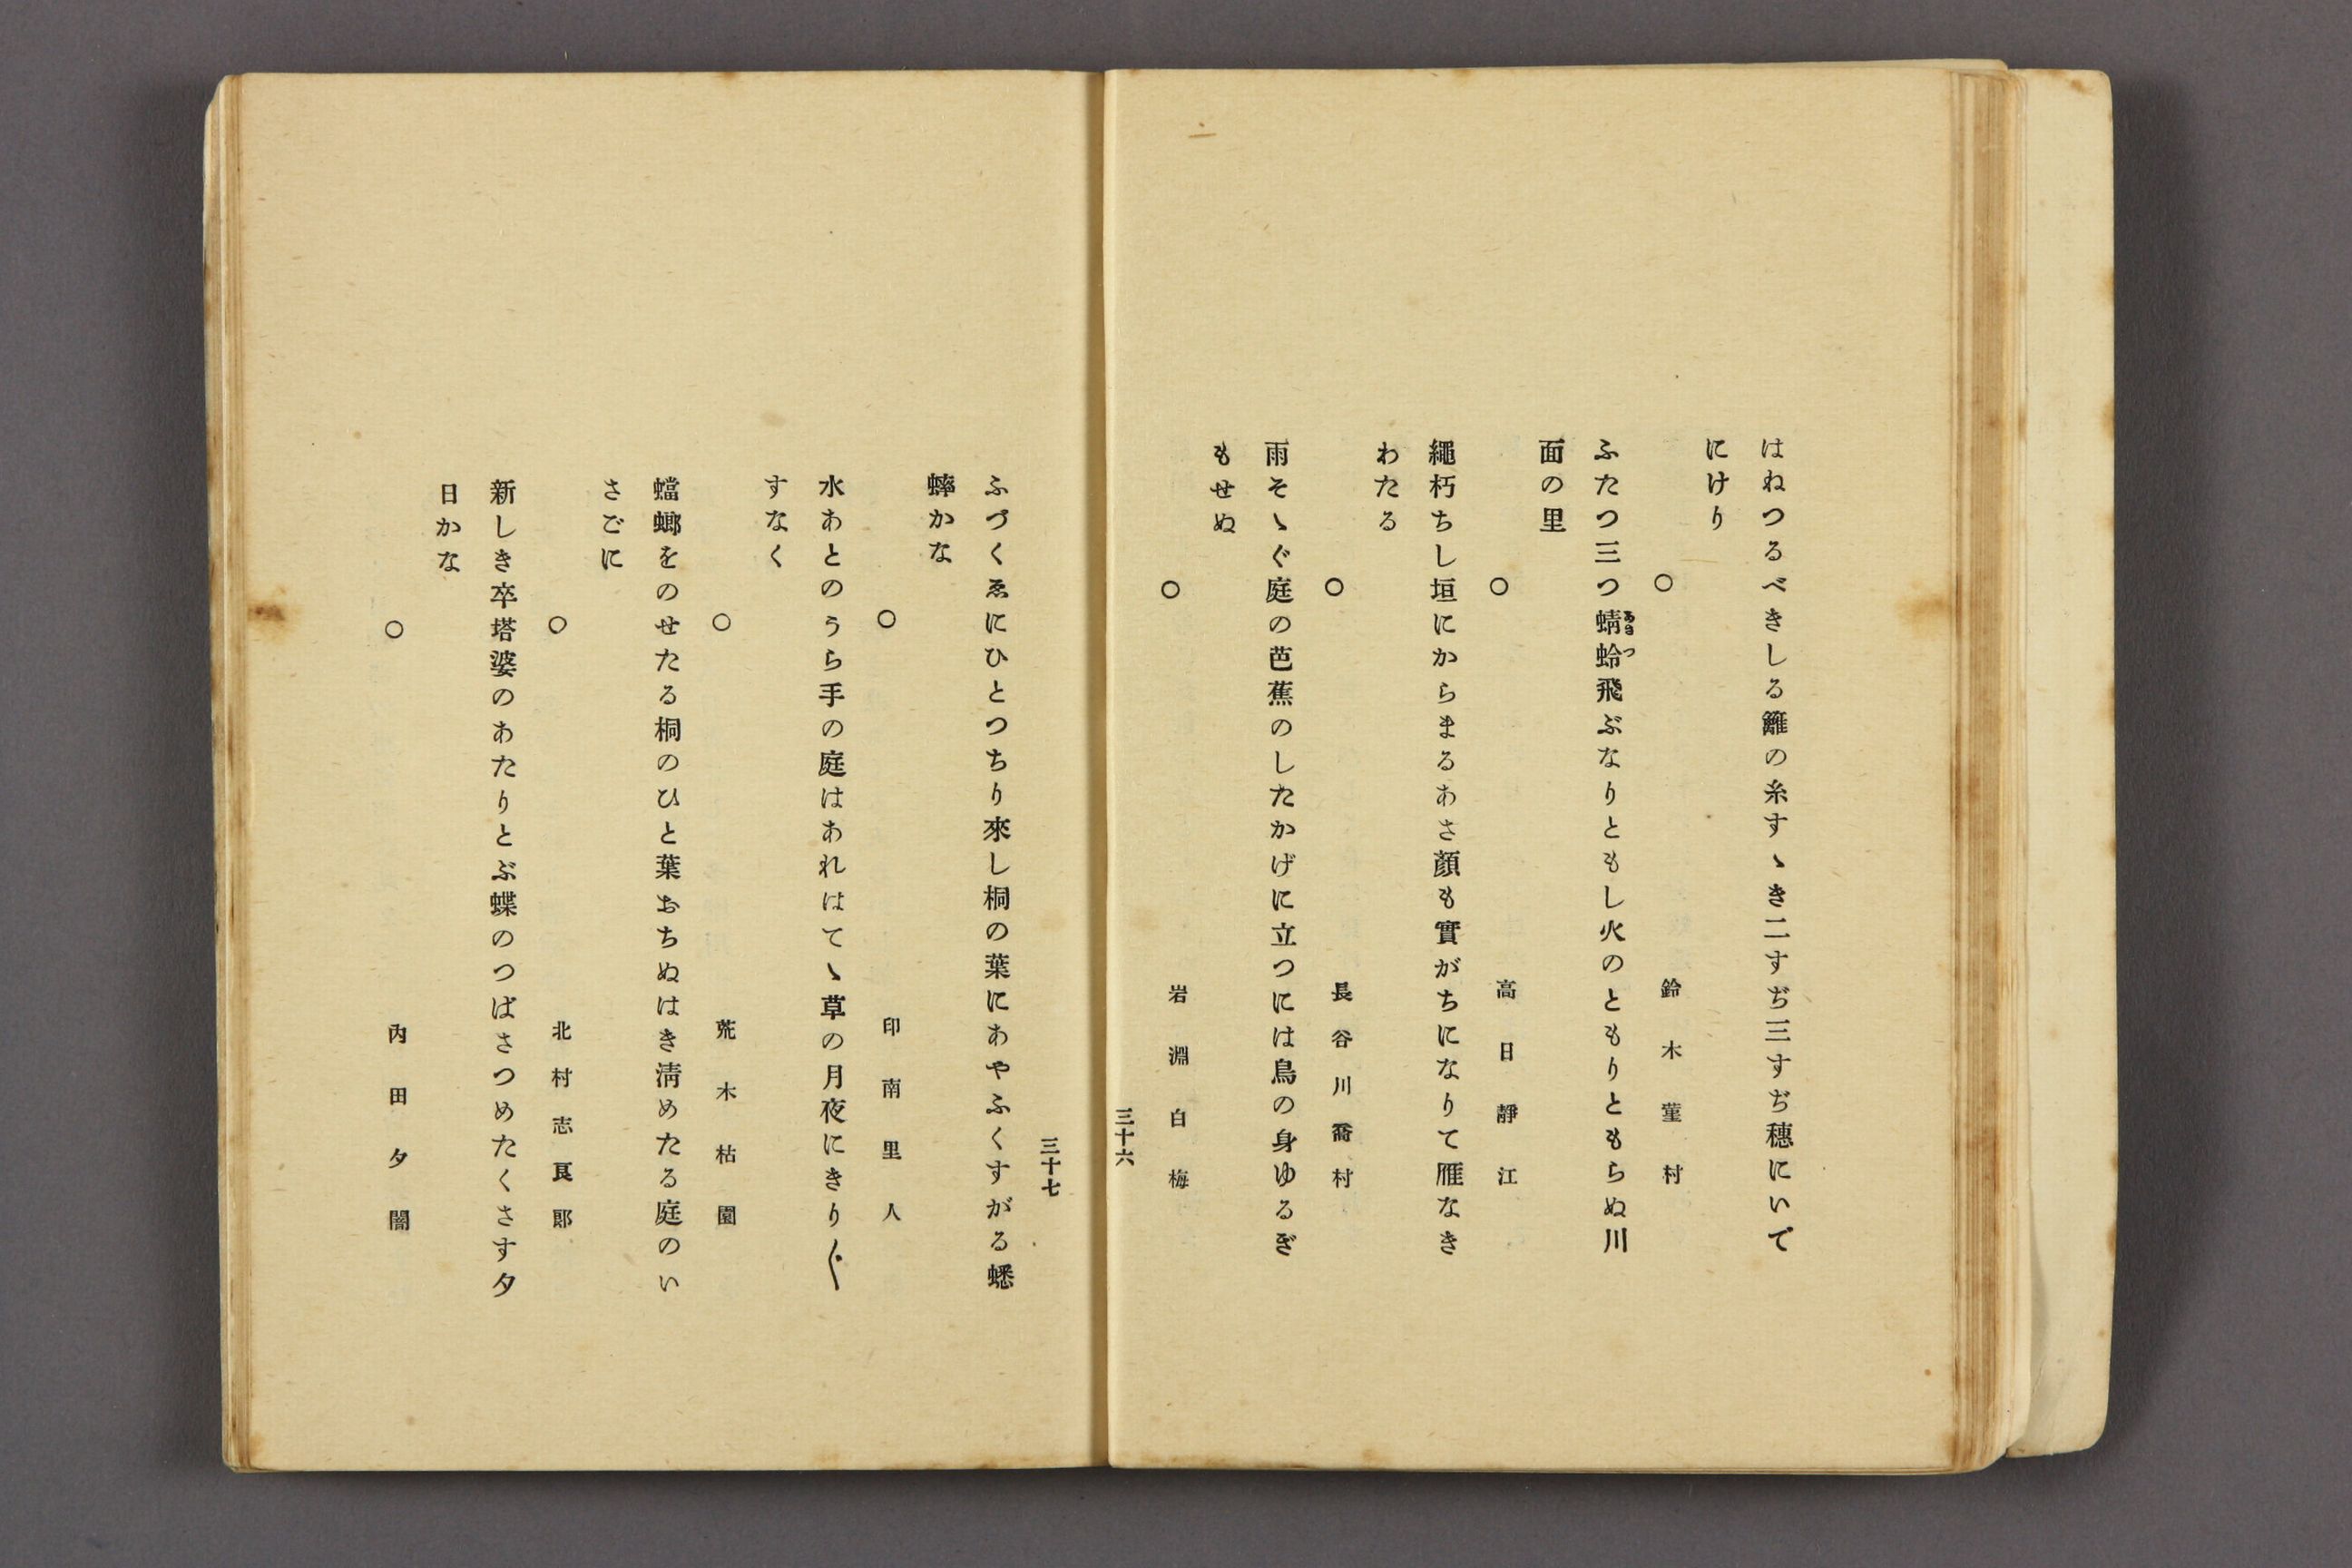 はねつるべきしる籬の糸すゝき二すぢ三すぢ穗にいで
にけり
○ 鈴木菫村
ふたつ三つ蜻蛉飛ぶなりともし火のともりともらぬ川
あきつ
面の里
○ 高日靜江
繩朽ちし垣にからまるあさ顏も實がちになりて雁なき
わたる
○ 長谷川喬村
雨そゝぐ庭の芭蕉のしたかげに立つには鳥の身ゆるぎ
もせぬ
○ 岩淵白梅
三十六
三十七
ふづくゑにひとつちり來し桐の葉にあやふくすがる蟋
蟀かな
○ 印南里人
水あとのうら手の庭はあれはてゝ草の月夜にきり〴〵
すなく
○ 荒木枯園
蟷螂をのせたる桐のひと葉おちぬはき淸めたる庭のい
さごに
○ 北村志良郞
新しき卒塔婆のあたりとぶ蝶のつばさつめたくさす夕
日かな
○ 内田夕闇